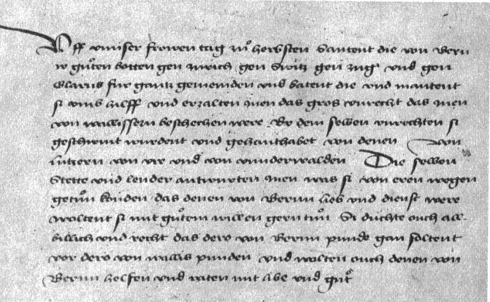 Uff unser frowen tag ze herbsten Santent die von Bern
ir guͦten botten gen zürich gen Switz gen zug und gen
Glarus für gantz gemeinden und batent die und mantent
si umb hilff und erzalten inen das gros unrecht das inen
von wallissern beschechen were Bi dem selben unrechten si
geschirmt wurdent und gehanthabet von denen von
lutzern von ure und von underwalden Die selben
Stette und lender antwurten inen was si von eren wegen
getuͦn könden das denen von Bernn lieb und dienst were
woltent si mit guͦtem willen gern tuͦn Si duchte ouch all
billich und recht das dero von Bernn pünde gan soltent
vor dero von wallis pünden und walten ouch denen von
Bernn helfen und raten mit libe und guͦt